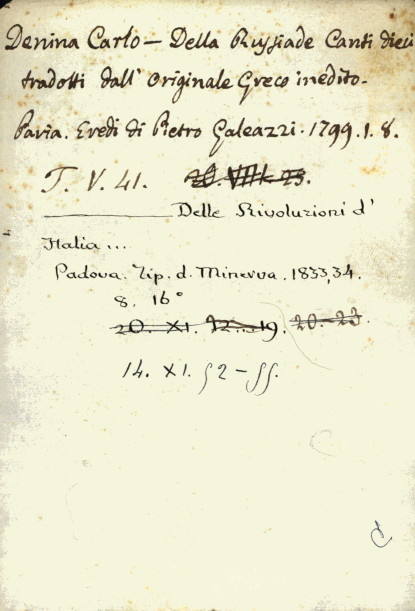 Denina Carlo — Della Russiade Canti dieci
tradotti dall' originale Greco inedito.
Pavia. Eredi di Pietro Galeazzi. 1799. 1. 8.
T. V. 41. 20. VIII. 23.
Delle Rivoluzioni d'
Italia ...
Padova. Tip. d. Minerva. 1833,34.
8. 16°
20. XI. 12...19. 20-23.
14. XI. 52-55.